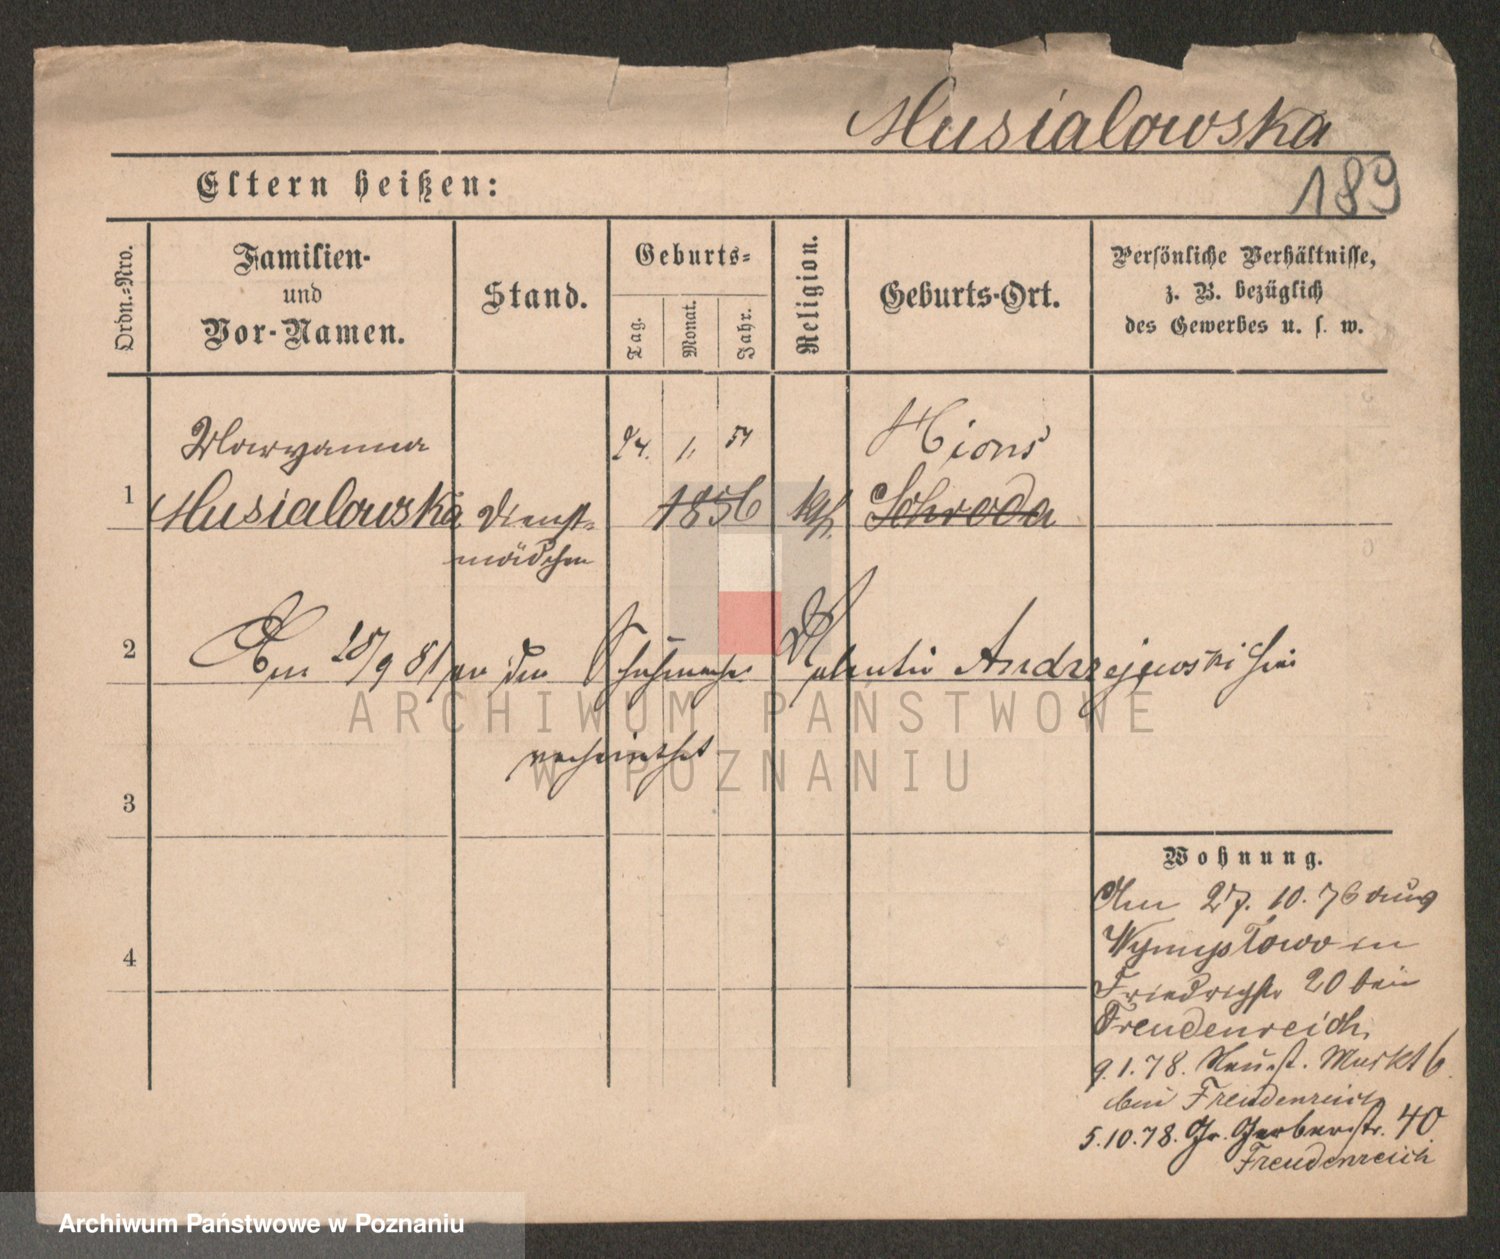 Musialowska
189
Eltern heißen:
Ordn.-Nro.
Familien-
und
Vor-Namen.
Stand.
Geburts-
Tag.
Monat.
Jahr.
Religion.
Geburts-Ort.
Persönliche Verhältnisse,
z. B. bezüglich
des Gewerbes u. s. w.
Maryanna 24. 1. 54 Xions
1 Musialowska Dienst- 1856 kth. Schroda
mädchen
2 Am 25/9 81 an den Schuhmacher Valentin Andrzejewski hier
verheirathet
3
4
Wohnung.
Am 27. 10. 76 aus
Wymysłowo in
Friedrichstr 20 bei
Freudenreich,
9.1.78. Neust. Markt 6.
bei Freudenreich
5.10.78. Gr. Gerberstr. 40.
Freudenreich
ARCHIWUM PAŃSTWOWE
W POZNANIU
Archiwum Państwowe w Poznaniu